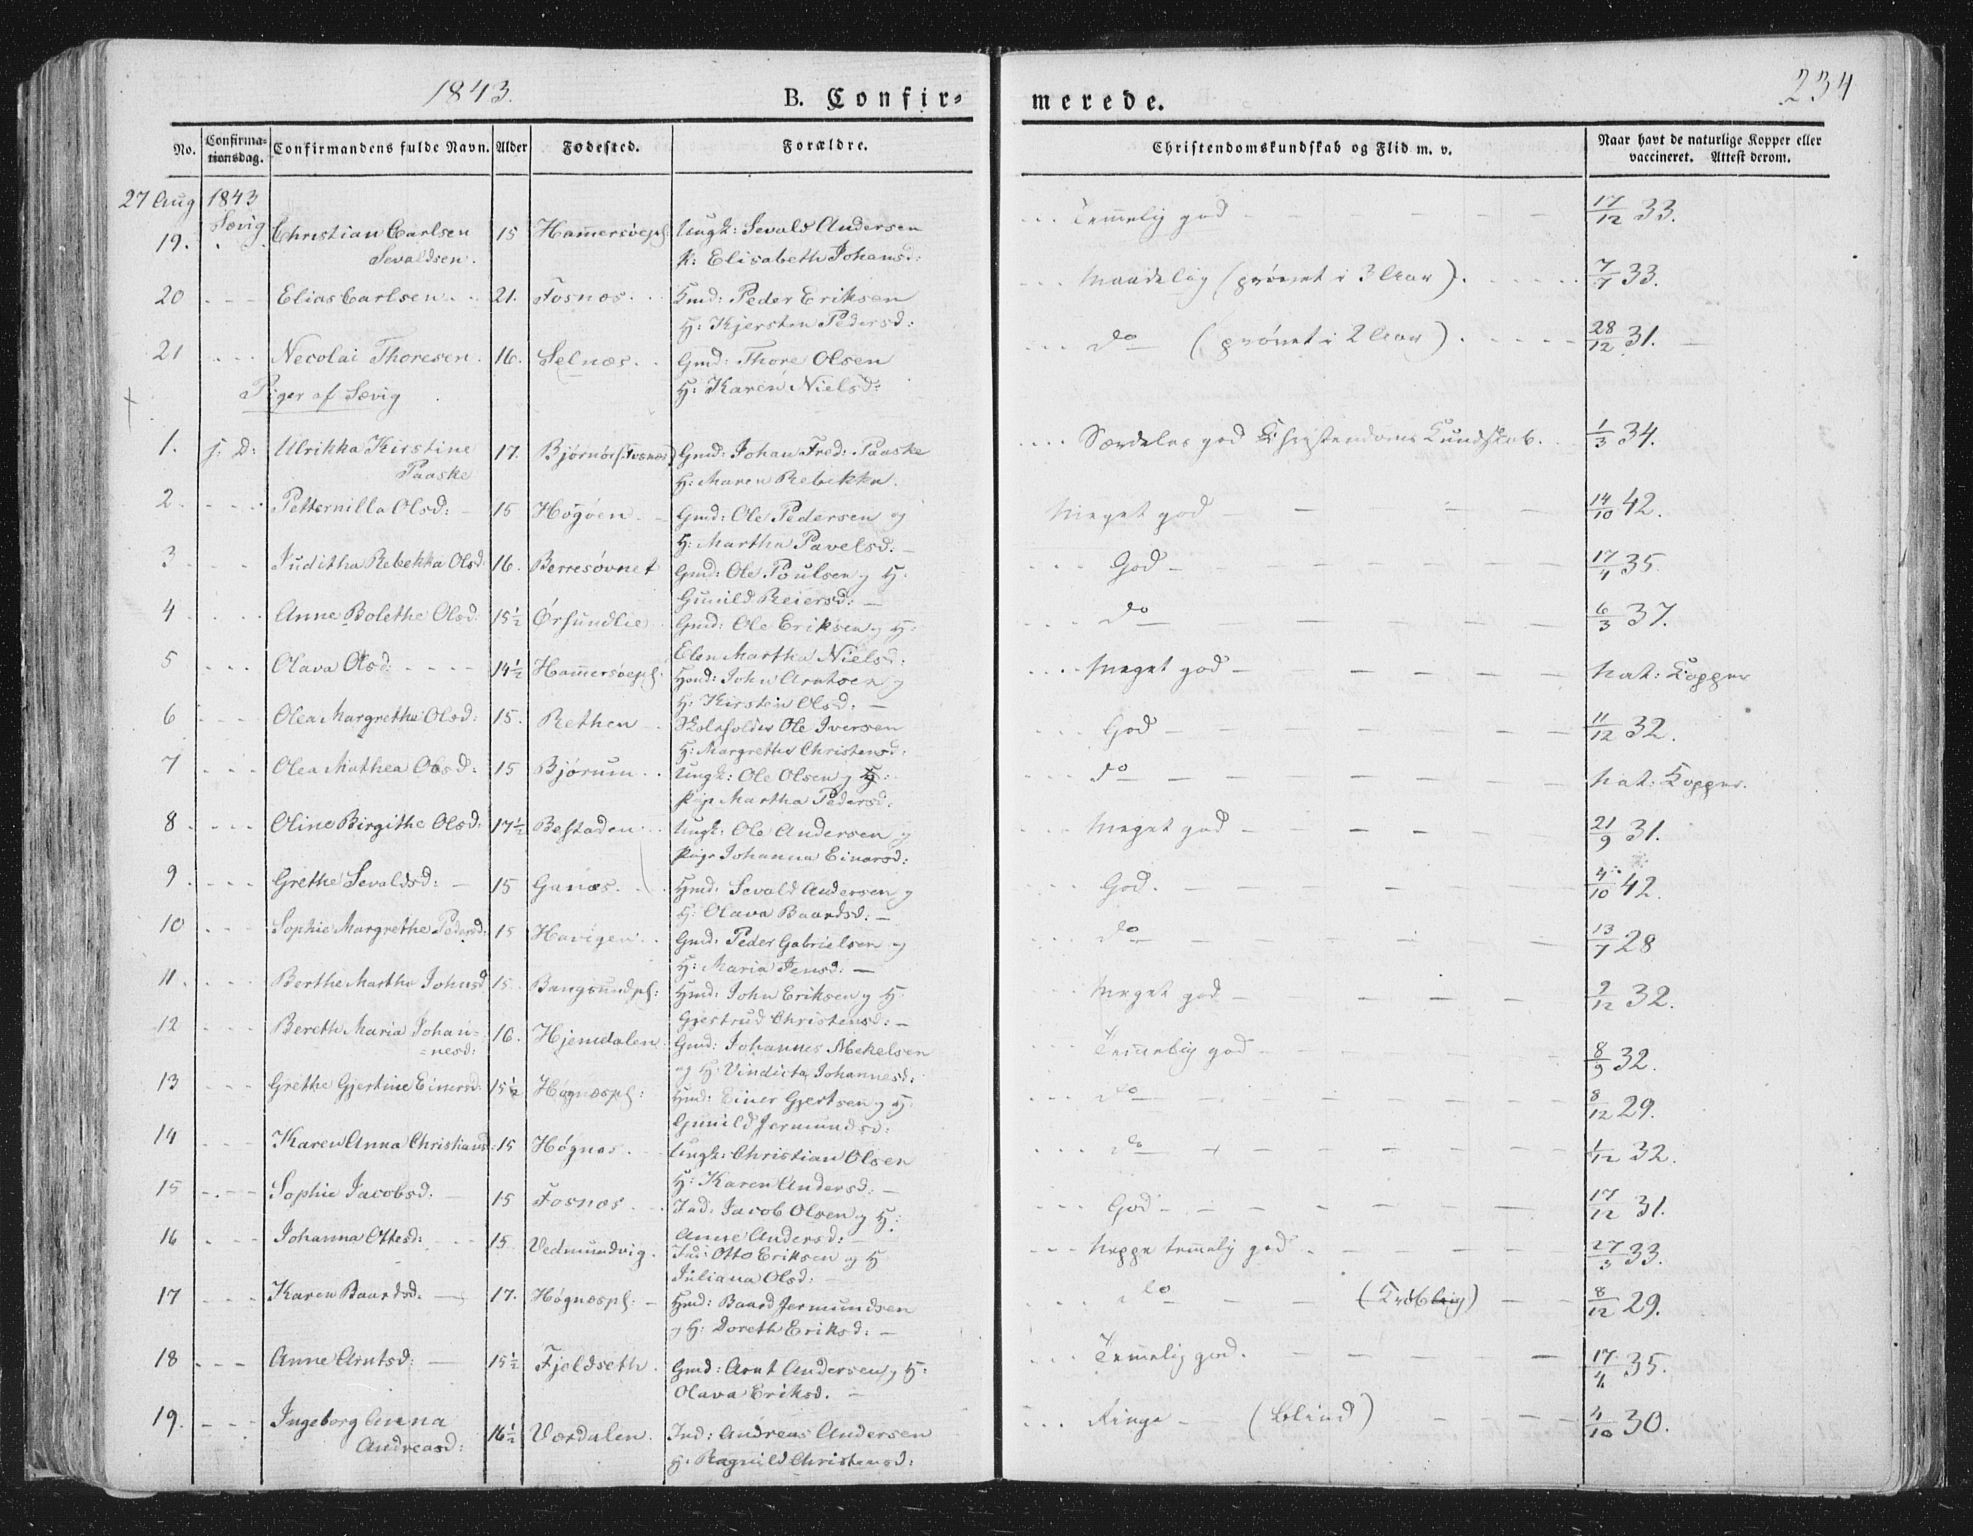 1843.
B. Confir=
merede.
234
No.
Confirma=
tionsdag.
Confirmandens fulde Navn.
Alder
Fødested.
Forældre.
Christendomskundskab og Flid m. v.
Naar havt de naturlige Kopper eller
vaccineret. Attest derom.
27 Aug 1843
Sævig
19. Christian Carlsen 15 Ungk: Sevald Andersen Temelig god 17/12 33.
Sevaldsen. P: Elisabeth Johansd:
20 Elias Carlsen 21. Fosnæs Gmd: Peder Eriksen Maadelig (prøvet i 3 Aar) 7/7 33.
H: Kjersten Pedersd:
21 Necolai Thoresen 16. Selnæs Gmd: Thore Olsen do (prøvet i 2 Aar) 28/12 31.
H: Karen Nielsd:
Piger af Sævig
1. Ulrikka Kirstine 17. Gmd: Johan Fred: Paaske Særdeles god Christendoms Kundskab. 1/3 34.
Paaske H: Maren Rebekka.
2 Petternilla Olsd: 15 Høgøen Gmd: Ole Pedersen og Meget god 14/10 42.
H: Martha Pavelsd:
3 Juditha Rebekka Olsd 16. Berresøvnet Gmd: Ole Poulsen og H: God 17/4 35
Gunild Reiersd:
4 Anne Bolethe Olsd 15½ Ørsundlie Gmd: Ole Eriksen og H: do 6/3 37.
Elen Martha Nielsd:
5 Olava Olsd: 14½ Hamersøepl: Hmd: John Arntsen og Meget god nat: Kopper
H: Kirsten Olsd:
6 Olea Margrethe Olsd: 15. Rethen Ole Iversen God 11/12 32.
H: Margrethe Christensd:
7 Olea Mathea Olsd: 15 Bjørum Ungk: Ole Olsen og do nat: Kopper.
Pige Martha Pedersd:
8 Oline Birgithe Olsd: 17½ Bestaden Ungk: Ole Andersen og Meget god 21/9 31.
Pige Johanna Einarsd:
9 Grethe Sevaldsd: 15 Ganæs Hmd: Sevald Andersen og God. 4/10 42.
H: Olava Baardsd:
10 Sophie Margrethe Pedersd: 15 Havigen Gmd: Peder Gabrielsen og do 13/7 28
H: Maria Jensd:
11 Berthe Martha Johnsd 15 Bangsundpl: Hmd: John Eriksen og H: Meget god 9/12 32.
Gjestrud Christensd:
12 Bereth Maria Johan= 16. Hjemdalen Gmd: Johannes Mekelsen Temelig god 8/9 32.
=nesd: og H: Vindicta Johannesd:
13 Grethe Gjertine Einersd 15½ Høgnæspl: Hmd: Einer Gjertsen og H: do 8/12 29.
Gunild Jermundsd:
14 Karen Anna Christiansd: 15 Høgnæs Ungk: Christian Olsen do 1/12 32.
H: Karen Andersd:
15 Sophie Jacobsd. 15 Fosnæs Ind: Jacob Olsen og H: God 17/12 31.
Anne Andersd:
16 Johanna Ottesd: 15 Vedmundvig Ind: Otto Eriksen og H Neppe temelig god 27/3 33.
Juliana Olsd:
17 Karen Baardsd. 17. Høgnæspl: Hmd: Baard Jermundsen do 8/12 29.
og H: Doreth Eriksd:
18 Anne Arntsd: 15½ Fjeldseth Gmd: Arnt Andersen og H: Temelig god. 17/4 35.
Olava Eriksd.
19. Ingeborg Anna 16½ Værdalen Ind: Andreas Andersen Ringe (blind) 4/10 30.
Andreasd: H: Ragnild Christensd: